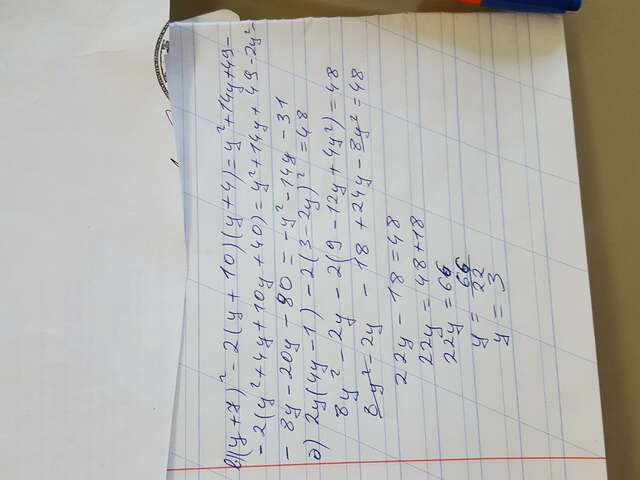 в) (y+7)² - 2(y+10)(y+4) = y²+14y+49-
- 2(y²+4y+10y+40) = y²+14y+49-2y²-
- 8y-20y-80 = -y²-14y-31
д) 2y(4y-1) - 2(3-2y)² = 48
8y² - 2y - 2(9-12y+4y²) = 48
8y² - 2y - 18 + 24y - 8y² = 48
22y - 18 = 48
22y = 48+18
22y = 66
y = 66/22
y = 3